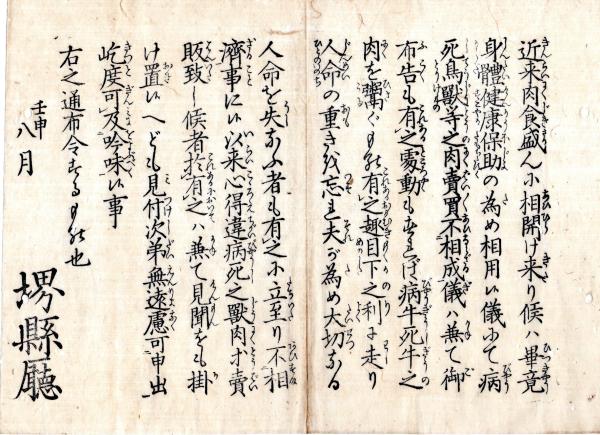 近来肉食盛んニ相開け来り候ハ畢竟
身體健康保助の為め相用い儀ニて病
死鳥獸等之肉賣買不相成儀ハ兼て御
布告も有之處動もすれば病牛死牛之
肉を鬻ぐもの有之趣目下之利に走り
人命の重きを忘れ夫が為め大切なる
人命を失なふ者も有之ニ立至り不相
濟事にい以来心得違病死之獸肉ホ賣
販致し候者於有之ハ兼て見聞をも掛
け置いへども見付次第無遠慮可申出
屹度可及吟味い事
右之通布令するもの也
壬申
八月
堺縣廳